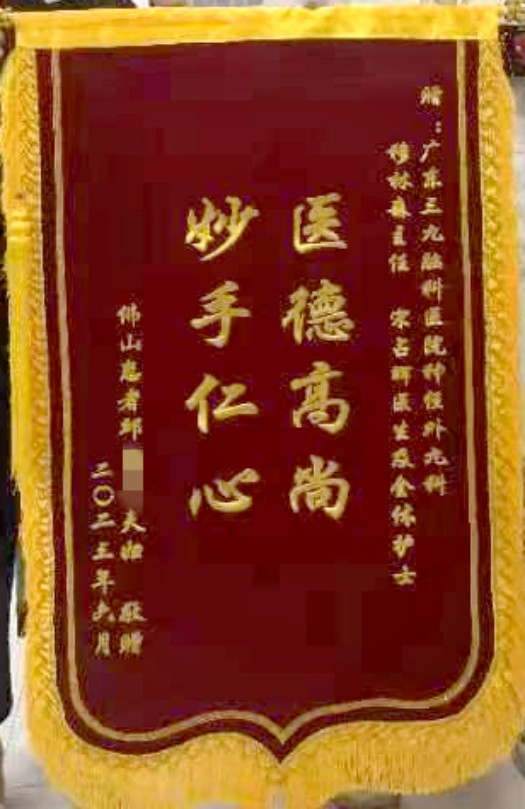 赠：广东三九脑科医院神经外九科
穆林森主任 宋占辉医生及全体护士
医德高尚
妙手仁心
佛山患者邱 夫妇 敬赠
二〇二三年六月